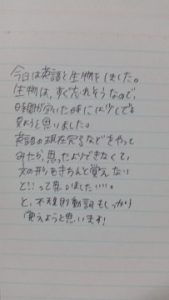 今日は英語と生物をしました。
生物は、すぐ忘れそうなので、
時間が空いた時には少しでも
見ようと思いました。
英語の現在完了などをやって
みたら、思ったよりできなくて、
文の形もきちんと覚えない
と…って思いました….
と、不規則動詞もしっかり
覚えようと思います!